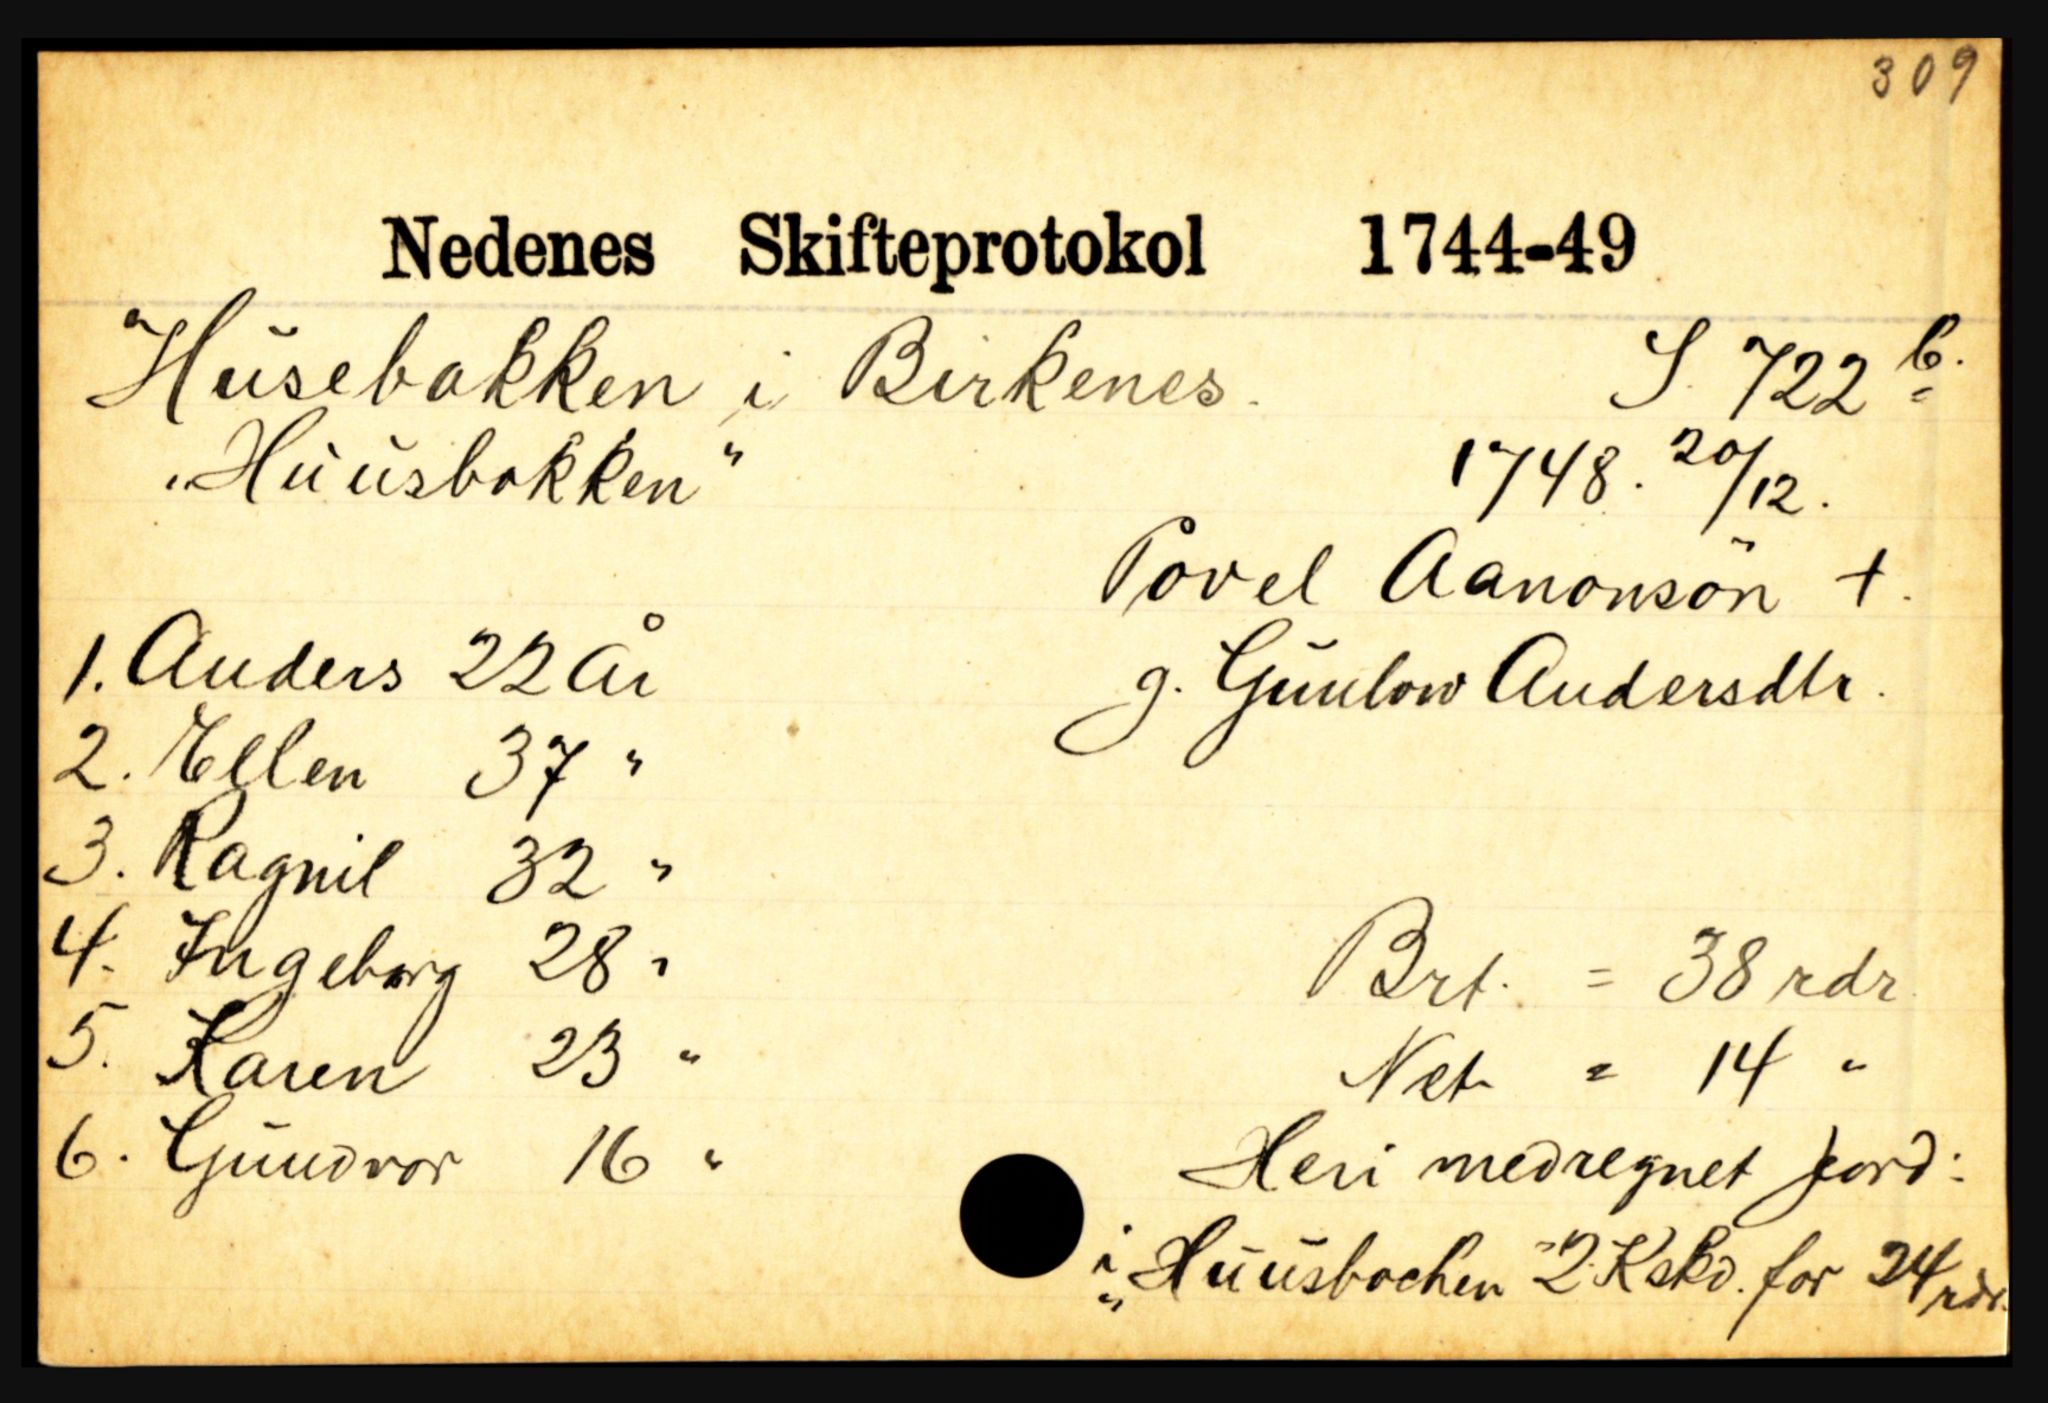 309
Nedenes Skifteprotokol 1744-49
Husebakken i Birkenes. S. 722 b.
„Huusbakken" 1748. 20/12.
Povel Aanonsön +.
g. Gunlow Andersdtr.
1. Anders 22 År
2. Ellen 37 "
3. Ragnil 32 "
4. Ingeborg 28 "
5. Karen 23 "
6. Gundvor 16 "
Brt. = 38 rdr
Net = 14 "
Heri medregnet Jord:
i „Huusbachen" 2 Kskd. for 24 rdr.